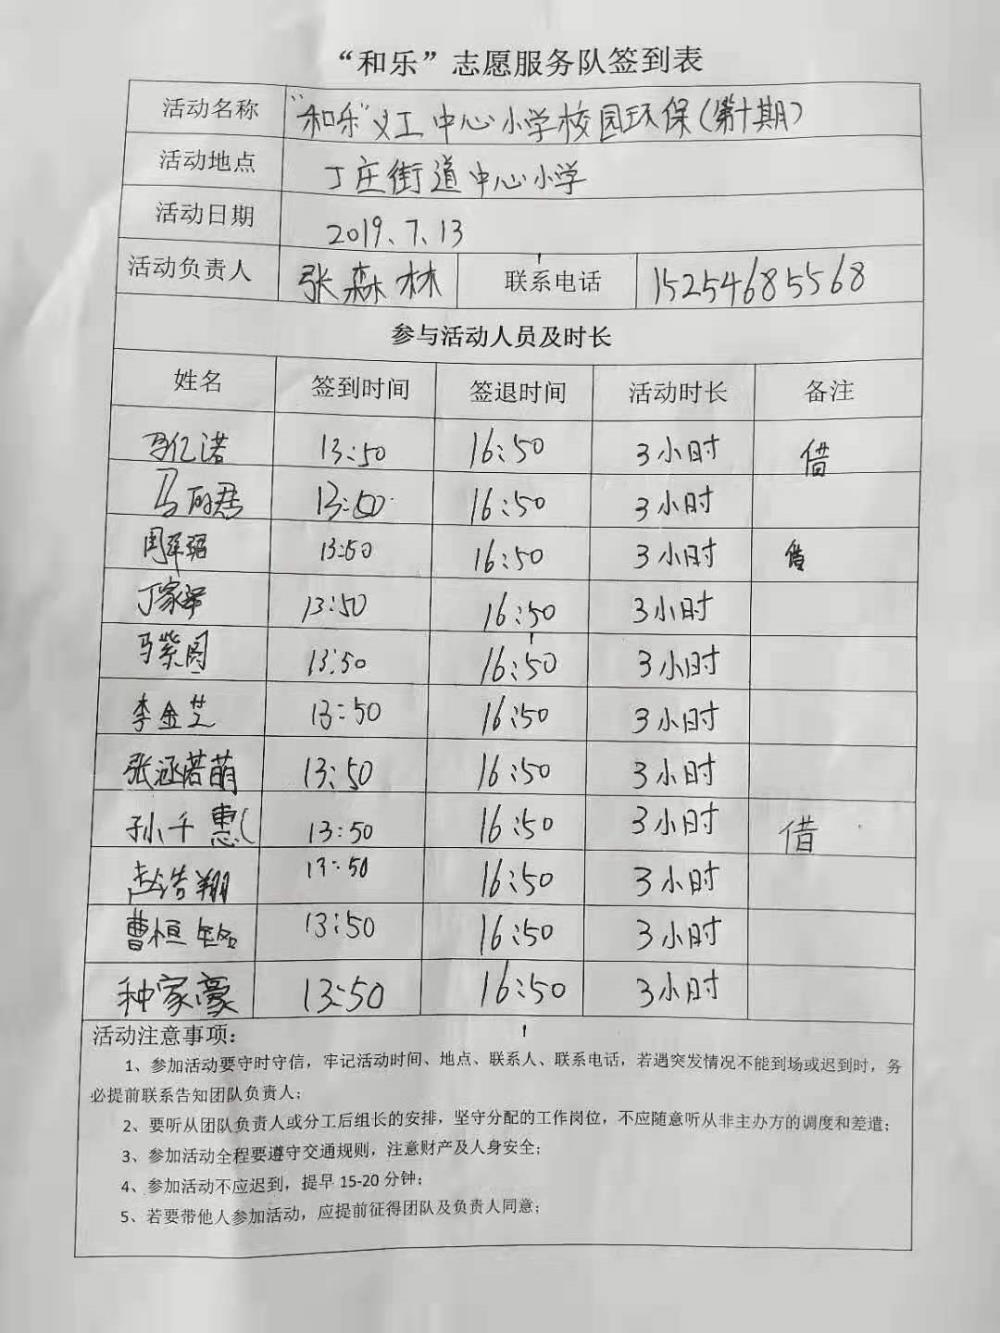 “和乐”志愿服务队签到表
活动名称 “和乐”义工中心小学校园环保(第十期)
活动地点 丁庄街道中心小学
活动日期 2019、7、13
活动负责人 张森林 联系电话 15254685568
参与活动人员及时长
姓名 签到时间 签退时间 活动时长 备注
马亿诺 13:50 16:50 3小时 借
马 君 13:50 16:50 3小时
周 13:50 16:50 3小时 借
丁家 13:50 16:50 3小时
马紫 13:50 16:50 3小时
李金芝 13:50 16:50 3小时
张涵若萌 13:50 16:50 3小时
孙千惠 13:50 16:50 3小时 借
赵浩翔 13:50 16:50 3小时
曹恒铭 13:50 16:50 3小时
种家豪 13:50 16:50 3小时
活动注意事项:
1、参加活动要守时守信，牢记活动时间、地点、联系人、联系电话，若遇突发情况不能到场或迟到时，务
必提前联系告知团队负责人；
2、要听从团队负责人或分工后组长的安排，坚守分配的工作岗位，不应随意听从非主办方的调度和差遣；
3、参加活动全程要遵守交通规则，注意财产及人身安全；
4、参加活动不应迟到，提早 15-20 分钟；
5、若要带他人参加活动，应提前征得团队及负责人同意；